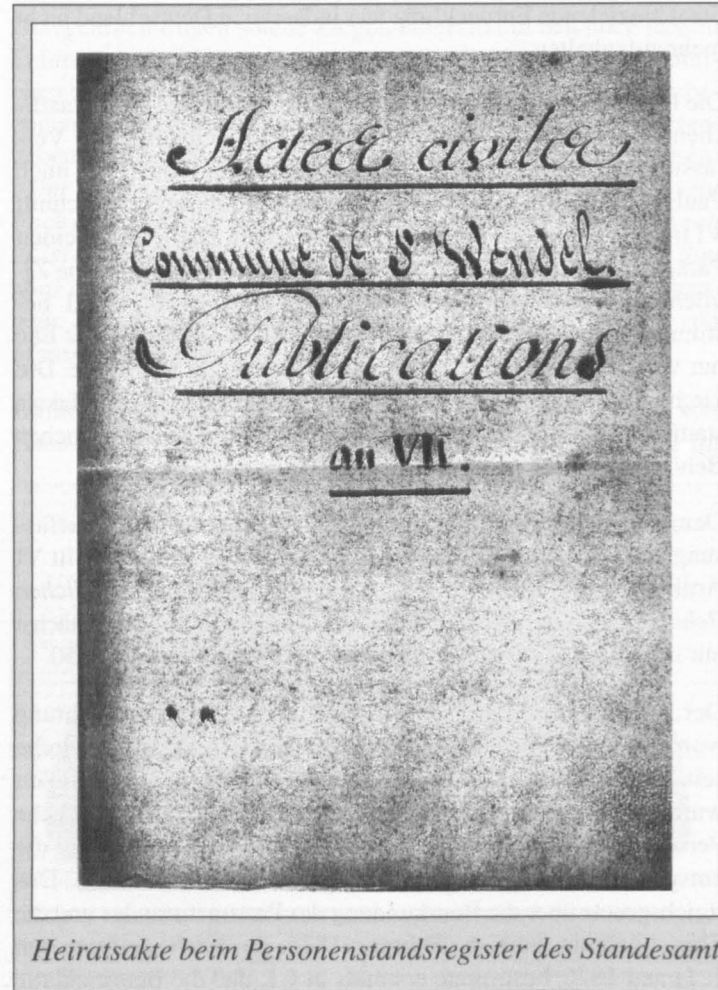 Actes civiles
Commune de S Wendel.
Publications
an VII.
Heiratsakte beim Personenstandsregister des Standesamt